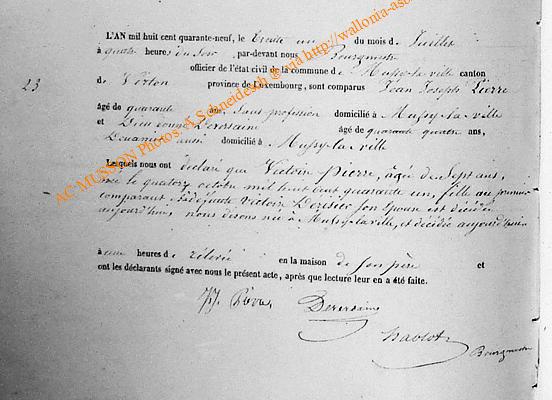 L'AN mil huit cent quarante-neuf, le trente un du mois de Juillet
à quatre heures du soir par-devant nous Bourgmestre
officier de l'état civil de la commune de Mussy-la-ville canton
23
de Virton province de Luxembourg, sont comparus Jean Joseph Pierre
âgé de quarante ans, sans profession domicilié à Mussy-la-ville
et Dieudonné âgé de quarante quatre ans,
Douanier aussi domicilié à Mussy-la-ville
Lesquels nous ont déclaré que Victoire Pierre, âgée de sept ans,
née le quatorze octobre mil huit cent quarante un, fille du premier
comparant et de Victoire son épouse est décédée
aujourd'hui, nous disons née à Mussy-la-ville, et décédée aujourd'hui
à heures de relevée en la maison de son père et
ont les déclarants signé avec nous le présent acte, après que lecture leur en a été faite.
JJ. Pierre
Bourgmestre
AC-MUNSON Photos: A Schneidesch @ via http://wallonia-aso